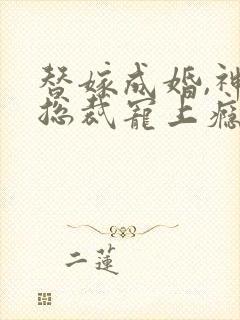 替嫁成婚,神
总裁宠上瘾
二莲